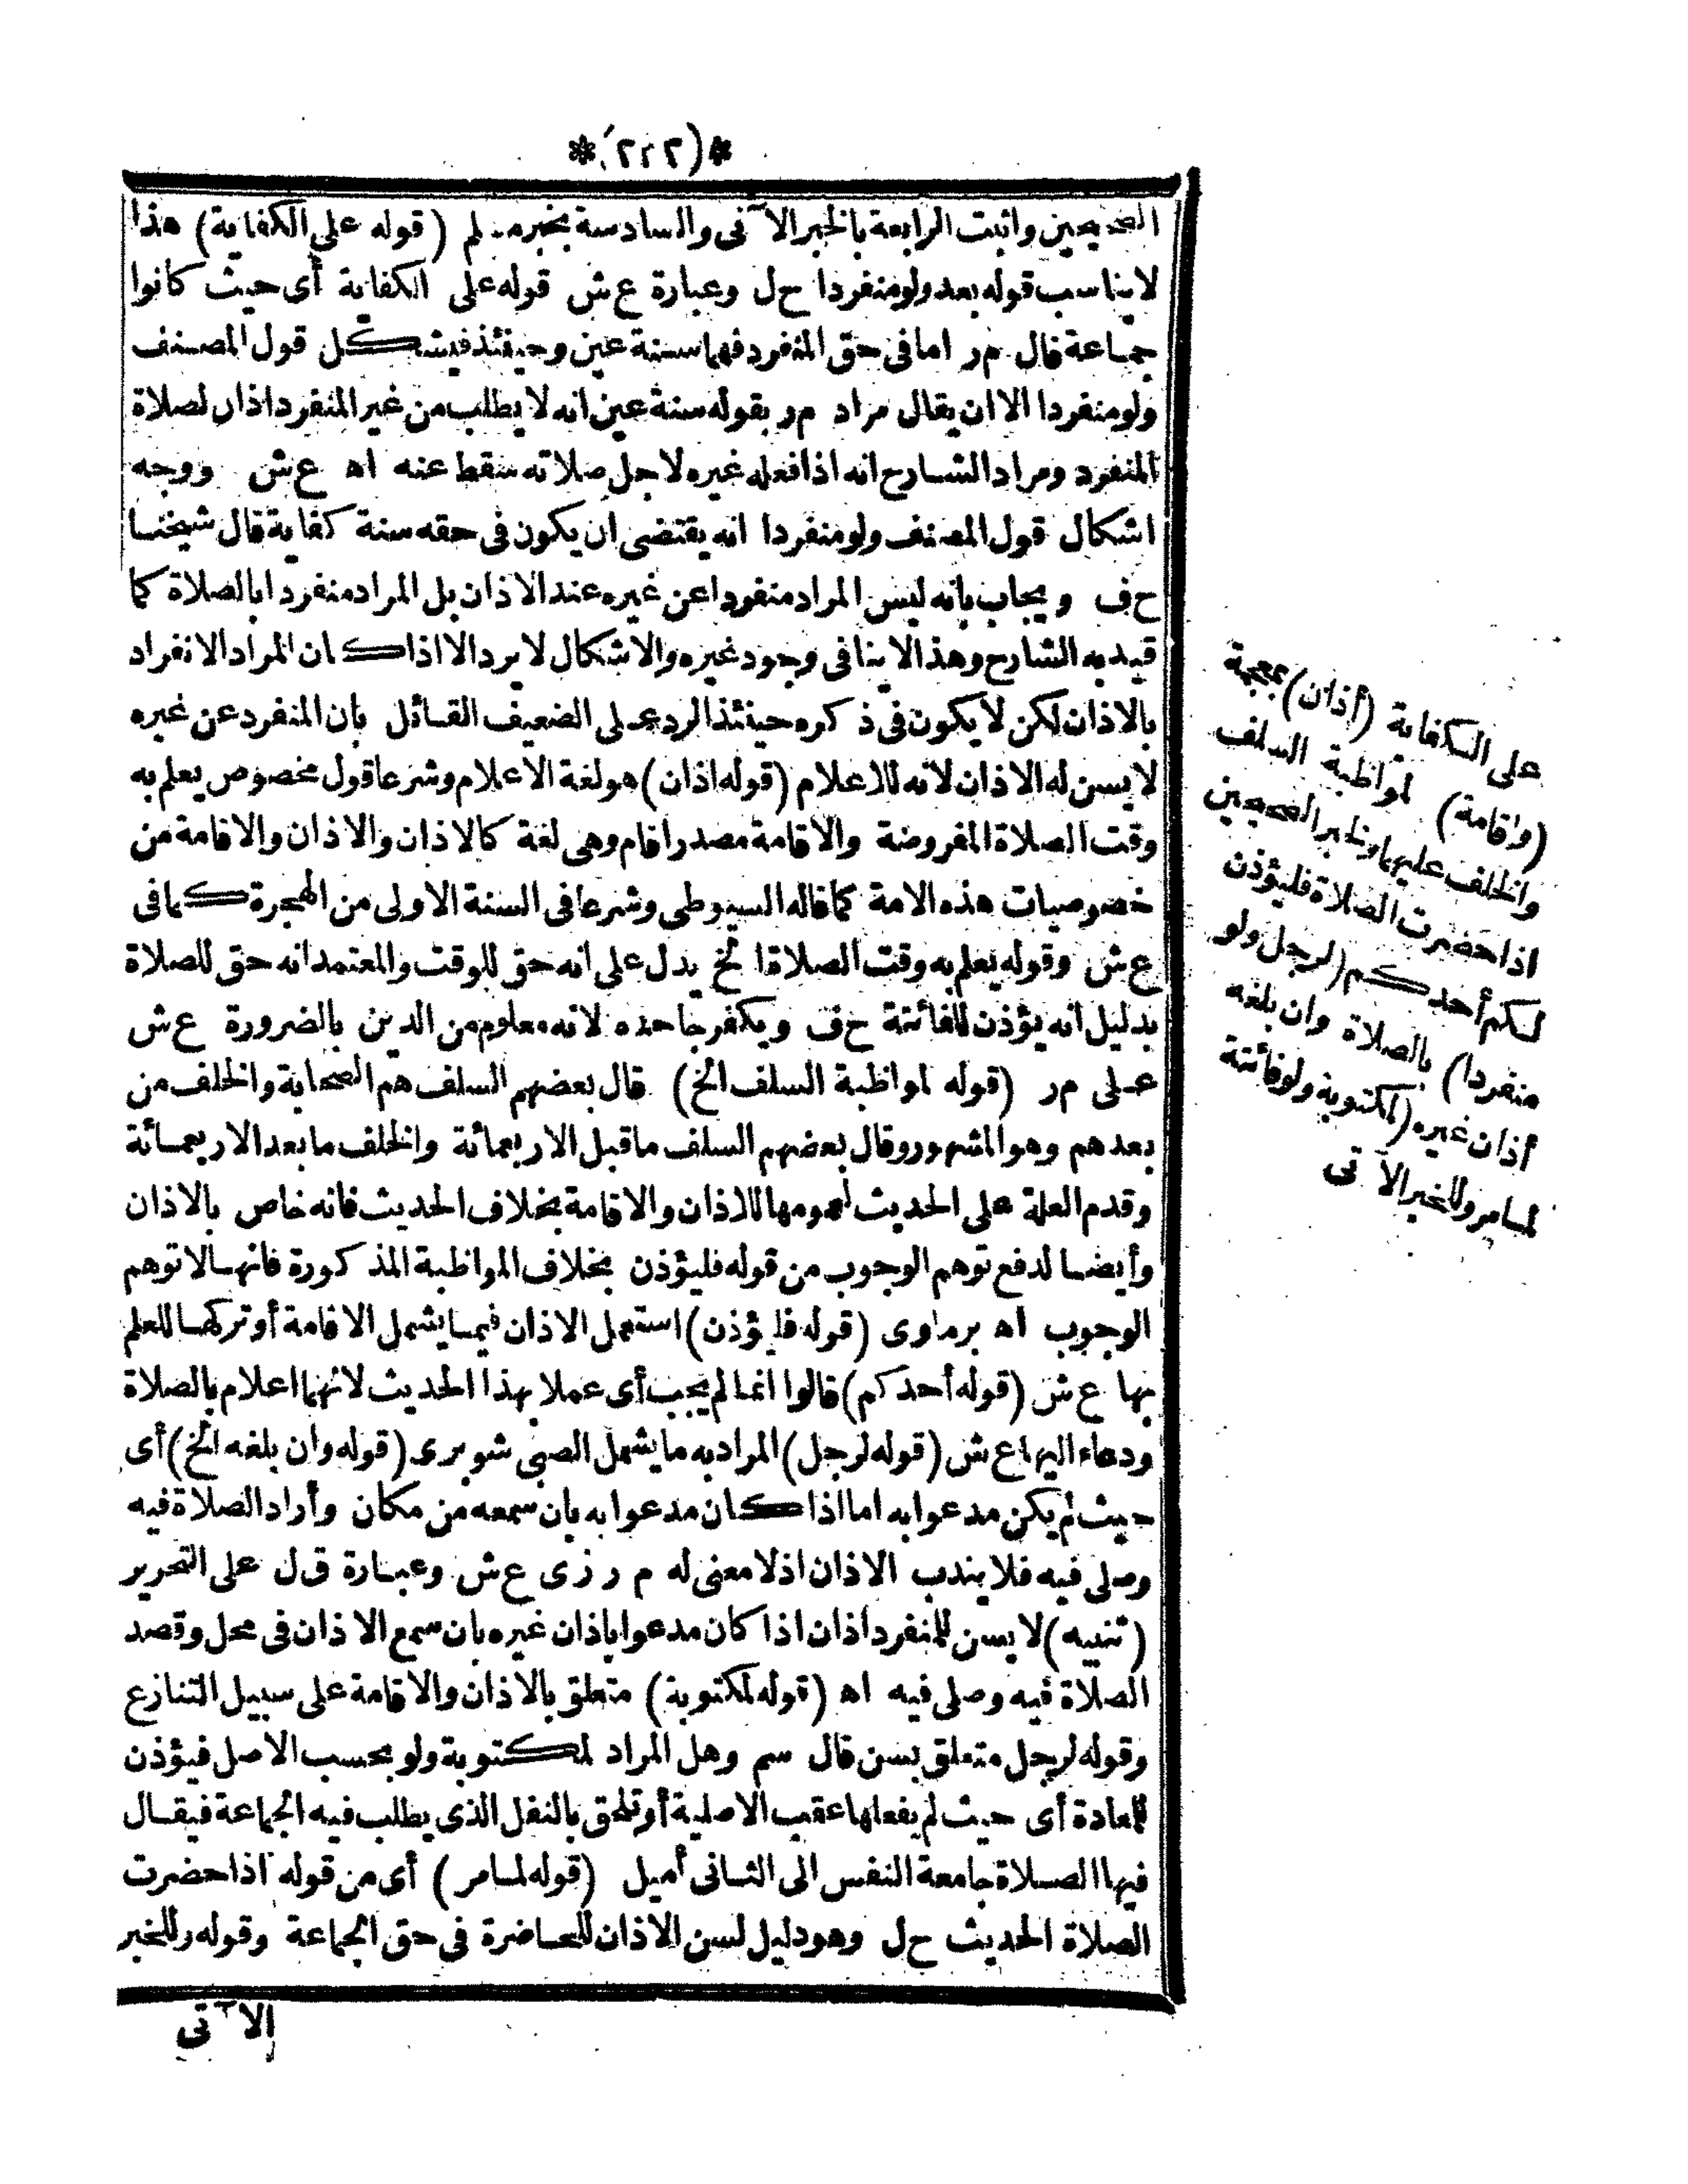 *(٢٢٢)*
الصحيحين واثبت الرابعة بالخبر الآتى والسادسة بخبر مسلم (قوله على الكفاية) هذا
لا يناسب قوله بعد ولو منفردا ح ل وعبارة ع ش قوله على الكفاية أى حيث كانوا
جماعة قال م ر اما فى حق المنفرد فهما سنة عين وحينئذ فيشكل قول المصنف
ولو منفردا الا ان يقال مراد م ر بقوله سنة عين انه لا يطلب من غير المنفرد اذان لصلاة
المنفرد ومراد الشارح انه اذا فعله غيره لاجل صلاته سقط عنه اه ع ش ووجه
اشكال قول المصنف ولو منفردا انه يقتضى ان يكون فى حقه سنة كفاية قال شيخنا
ح ف ويجاب بانه ليس المراد منفردا عن غيره عند الاذان بل المراد منفردا بالصلاة كما
قيد به الشارح وهذا لا ينافى وجود غيره والاشكال لا يرد الا اذا كان المراد الانفراد
بالاذان لكن لا يكون فى ذكره حينئذ الرد على الضعيف القائل بان المنفرد عن غيره
لا يسن له الاذان لانه للاعلام (قوله اذان) هو لغة الاعلام وشرعا قول مخصوص يعلم به
وقت الصلاة المفروضة والاقامة مصدر اقام وهى لغة كالاذان والاذان والاقامة من
خصوصيات هذه الامة كما قاله السيوطى وشرعا فى السنة الاولى من الهجرة كما فى
ع ش وقوله يعلم به وقت الصلاة الخ يدل على انه حق للوقت والمعتمد انه حق للصلاة
بدليل انه يؤذن للفائتة ح ف ويكفر جاحده لانه معلوم من الدين بالضرورة ع ش
على م ر (قوله لمواظبة السلف الخ) قال بعضهم السلف هم الصحابة والخلف من
بعدهم وهو المشهور وقال بعضهم السلف ما قبل الاربعمائة والخلف ما بعد الاربعمائة
وقدم العلة على الحديث لعمومها للاذان والاقامة بخلاف الحديث فانه خاص بالاذان
وأيضا لدفع توهم الوجوب من قوله فليؤذن بخلاف المواظبة المذكورة فانها لا توهم
الوجوب اه برماوى (قوله فليؤذن) استعمل الاذان فيما يشمل الاقامة أو تركها للعلم
بها ع ش (قوله أحدكم) قالوا انما لم يجب أى عملا بهذا الحديث لانهما اعلام بالصلاة
ودعاء اليها ع ش (قوله لرجل) المراد به ما يشمل الصبى شوبرى (قوله وان بلغه الخ) أى
حيث لم يكن مدعوا به اما اذا كان مدعوا به بان سمعه من مكان وأراد الصلاة فيه
وصلى فيه فلا يندب الاذان اذ لا معنى له م ر ز ى ع ش وعبارة ق ل على التحرير
(تنبيه) لا يسن للمنفرد اذان اذا كان مدعوا باذان غيره بان سمع الاذان فى محل وقصد
الصلاة فيه وصلى فيه اه (قوله لمكتوبة) متعلق بالاذان والاقامة على سبيل التنازع
وقوله لرجل متعلق بسن قال سم وهل المراد لمكتوبة ولو بحسب الاصل فيؤذن
للمعادة أى حيث لم يفعلها عقب الاصلية أو تلحق بالنفل الذى يطلب فيه الجماعة فيقال
فيها الصلاة جامعة النفس الى الثانى أميل (قوله لما مر) أى من قوله اذا حضرت
الصلاة الحديث ح ل وهو دليل لسن الاذان للحاضرة فى حق الجماعة وقوله وللخبر
الآتى
على الكفاية (أذان) بمعجمة
(واقامة) لمواظبة السلف
والخلف عليها ولخبر الصحيحين
اذا حضرت الصلاة فليؤذن
لكم أحدكم (لرجل ولو
منفردا) بالصلاة وان بلغه
أذان غيره (لمكتوبة ولو فائتة
لما مر وللخبر الآتى